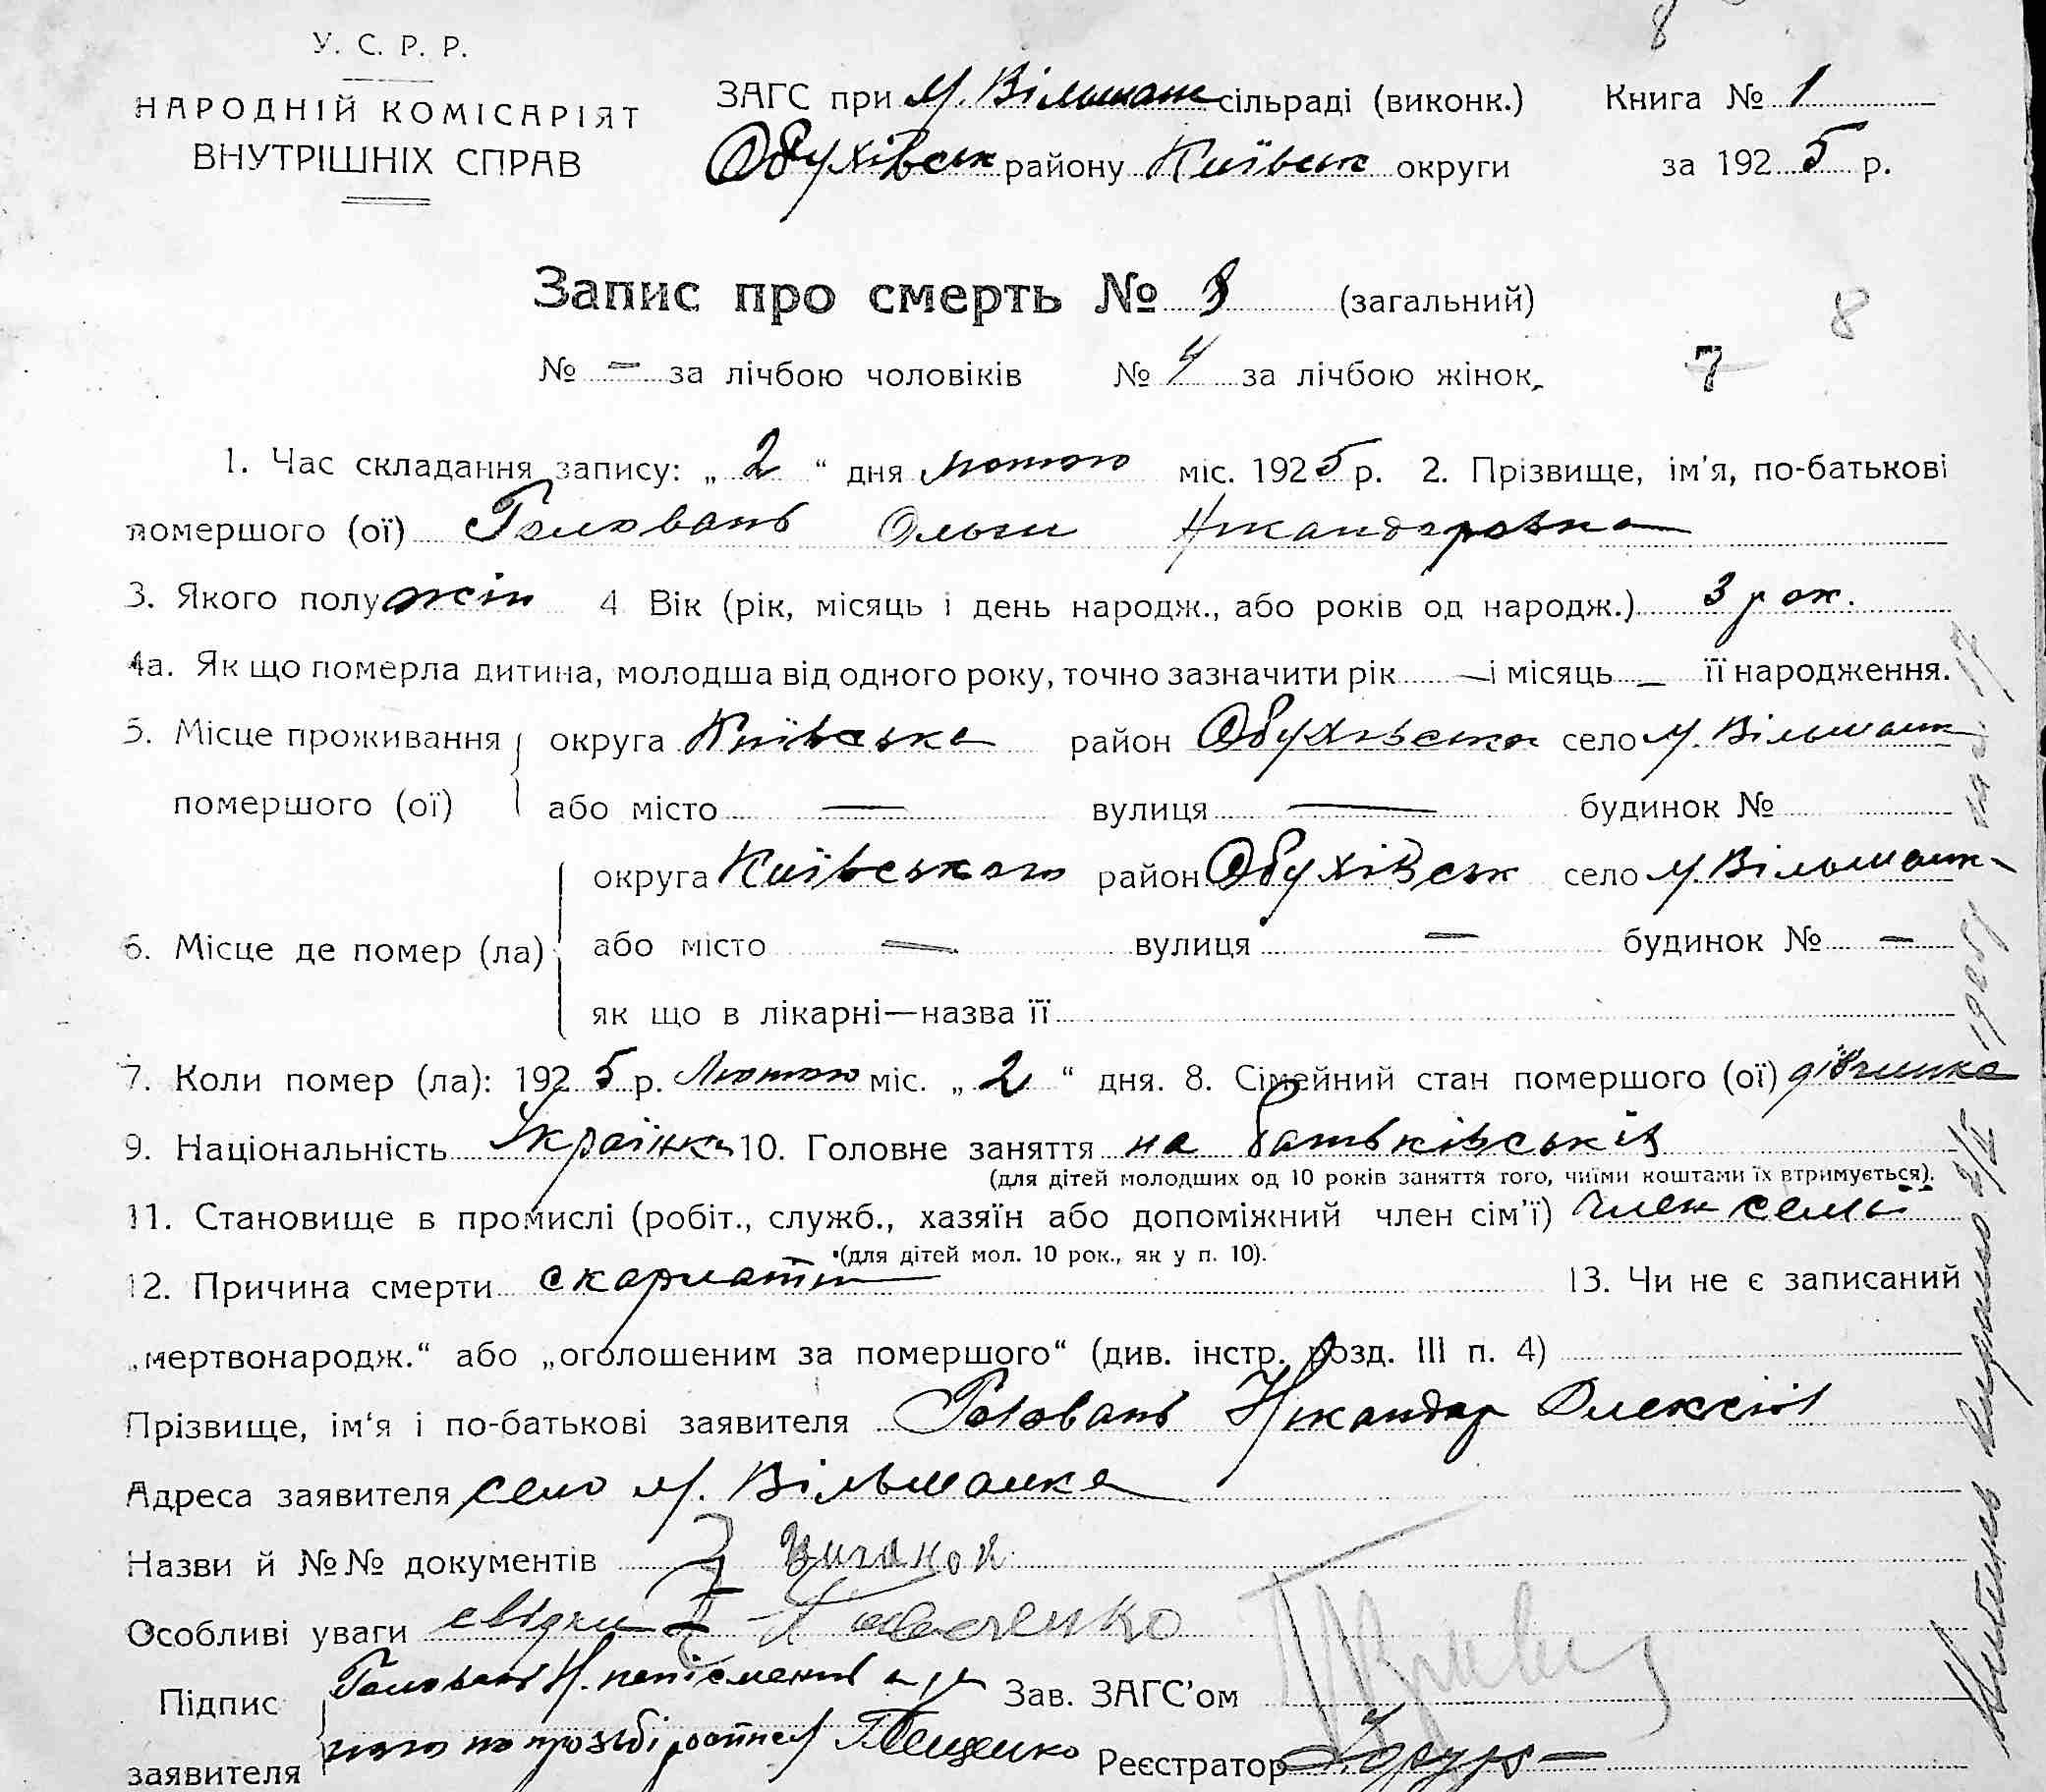 8
У. С. Р. Р.
НАРОДНІЙ КОМІСАРІЯТ
ВНУТРІШНІХ СПРАВ
ЗАГС при м. Вільшанк сільраді (виконк.) Книга № 1
Обухівськ району Київськ округи за 1925 р.
Запис про смерть № 8 (загальний)
8
№ — за лічбою чоловіків № 4 за лічбою жінок. 7
1. Час складання запису: „ 2 “ дня лютого міс. 1925 р. 2. Прізвище, ім'я, по-батькові
помершого (ої) Головань Ольги Нікандоровна
3. Якого полу жін 4 Вік (рік, місяць і день народж., або років од народж.) 3 рок.
4а. Як що померла дитина, молодша від одного року, точно зазначити рік — і місяць — її народження.
5. Місце проживання округа Київська район Обухівська село м. Вільшанк
помершого (ої) або місто — вулиця — будинок №
округа Київського район Обухівськ село м. Вільшанк
6. Місце де помер (ла) або місто — вулиця — будинок № —
як що в лікарні—назва її
7. Коли помер (ла): 1925 р. Лютого міс. „ 2 “ дня. 8. Сімейний стан помершого (ої) дівчинка
9. Національність Українка 10. Головне заняття на батьківській
(для дітей молодших од 10 років заняття того, чиїми коштами їх втримується).
11. Становище в промислі (робіт., служб., хазяїн або допоміжний член сім'ї) член семьї
(для дітей мол. 10 рок., як у п. 10).
12. Причина смерти скарлатин 13. Чи не є записаний
„мертвонародж.“ або „оголошеним за помершого“ (див. інстр. розд. III п. 4)
Прізвище, ім'я і по-батькові заявителя Головань Нікандор Олексієв
Адреса заявителя село м. Вільшанка
Назви й №№ документів
Особливі уваги свідки
Підпис Головань Н. неписменний а за Зав. ЗАГС'ом
заявителя його по прозьбі Пещенко Реєстратор